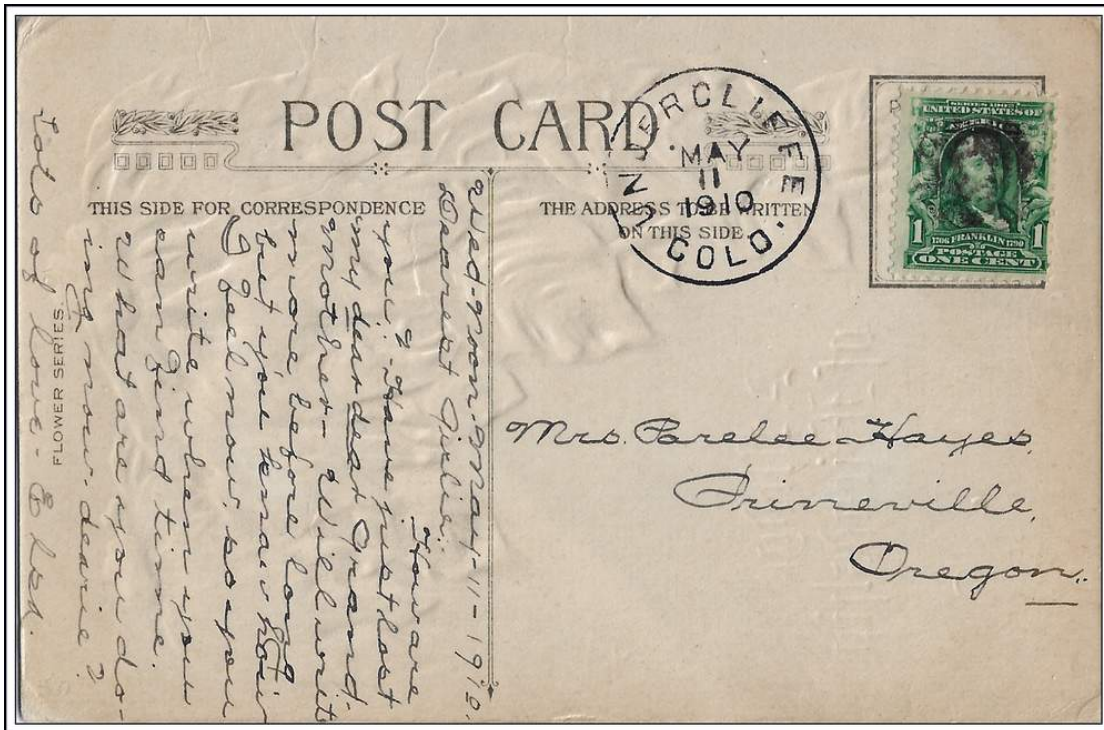 POST CARD.
THIS SIDE FOR CORRESPONDENCE
THE ADDRESS TO BE WRITTEN
ON THIS SIDE.
UNDERCLIFFE
MAY
11
1910
COLO.
SERIES 1902
UNITED STATES OF
AMERICA
1706 FRANKLIN 1790
1 POSTAGE 1
ONE CENT
Wed-noon-May-11-1910.
Dearest Girlie:
How are
you? Have just lost
my dear dear Grand
mother- Will write
more before long
but you know how
I feel now, so you
write when you
can find time.
What are you do-
ing now- dearie?
Lots of love-
FLOWER SERIES.
Mrs. Parelee Hayes,
Prineville,
Oregon.